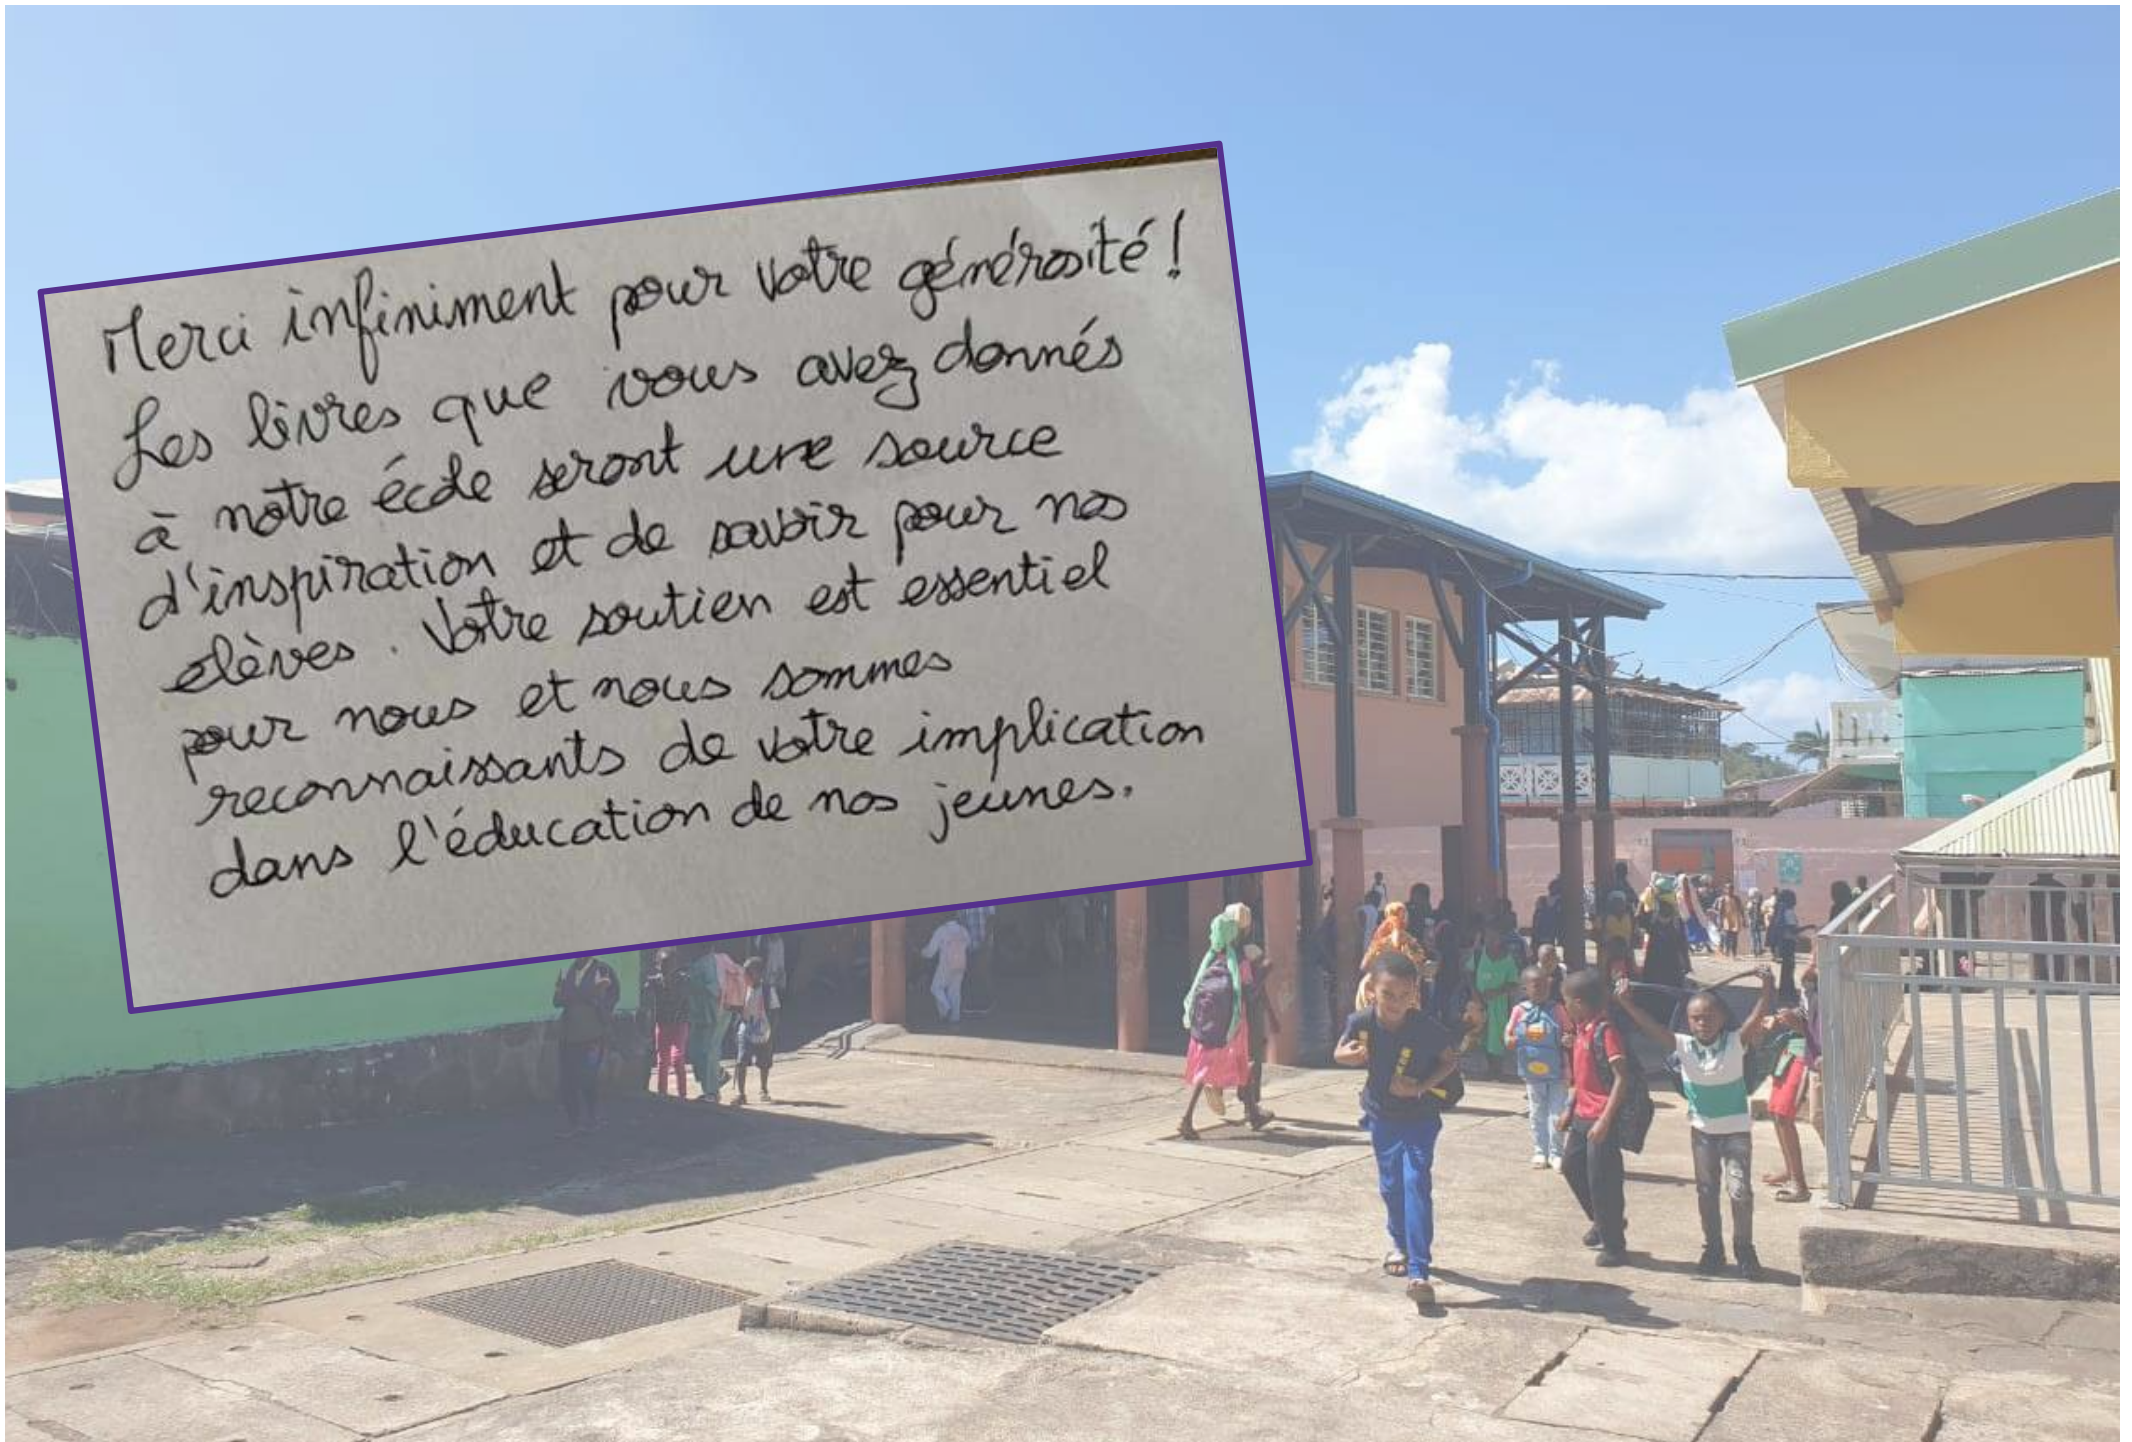 Merci infiniment pour votre générosité !
Les livres que vous avez donnés
à notre école seront une source
d'inspiration et de savoir pour nos
elèves. Votre soutien est essentiel
pour nous et nous sommes
reconnaissants de votre implication
dans l'éducation de nos jeunes.